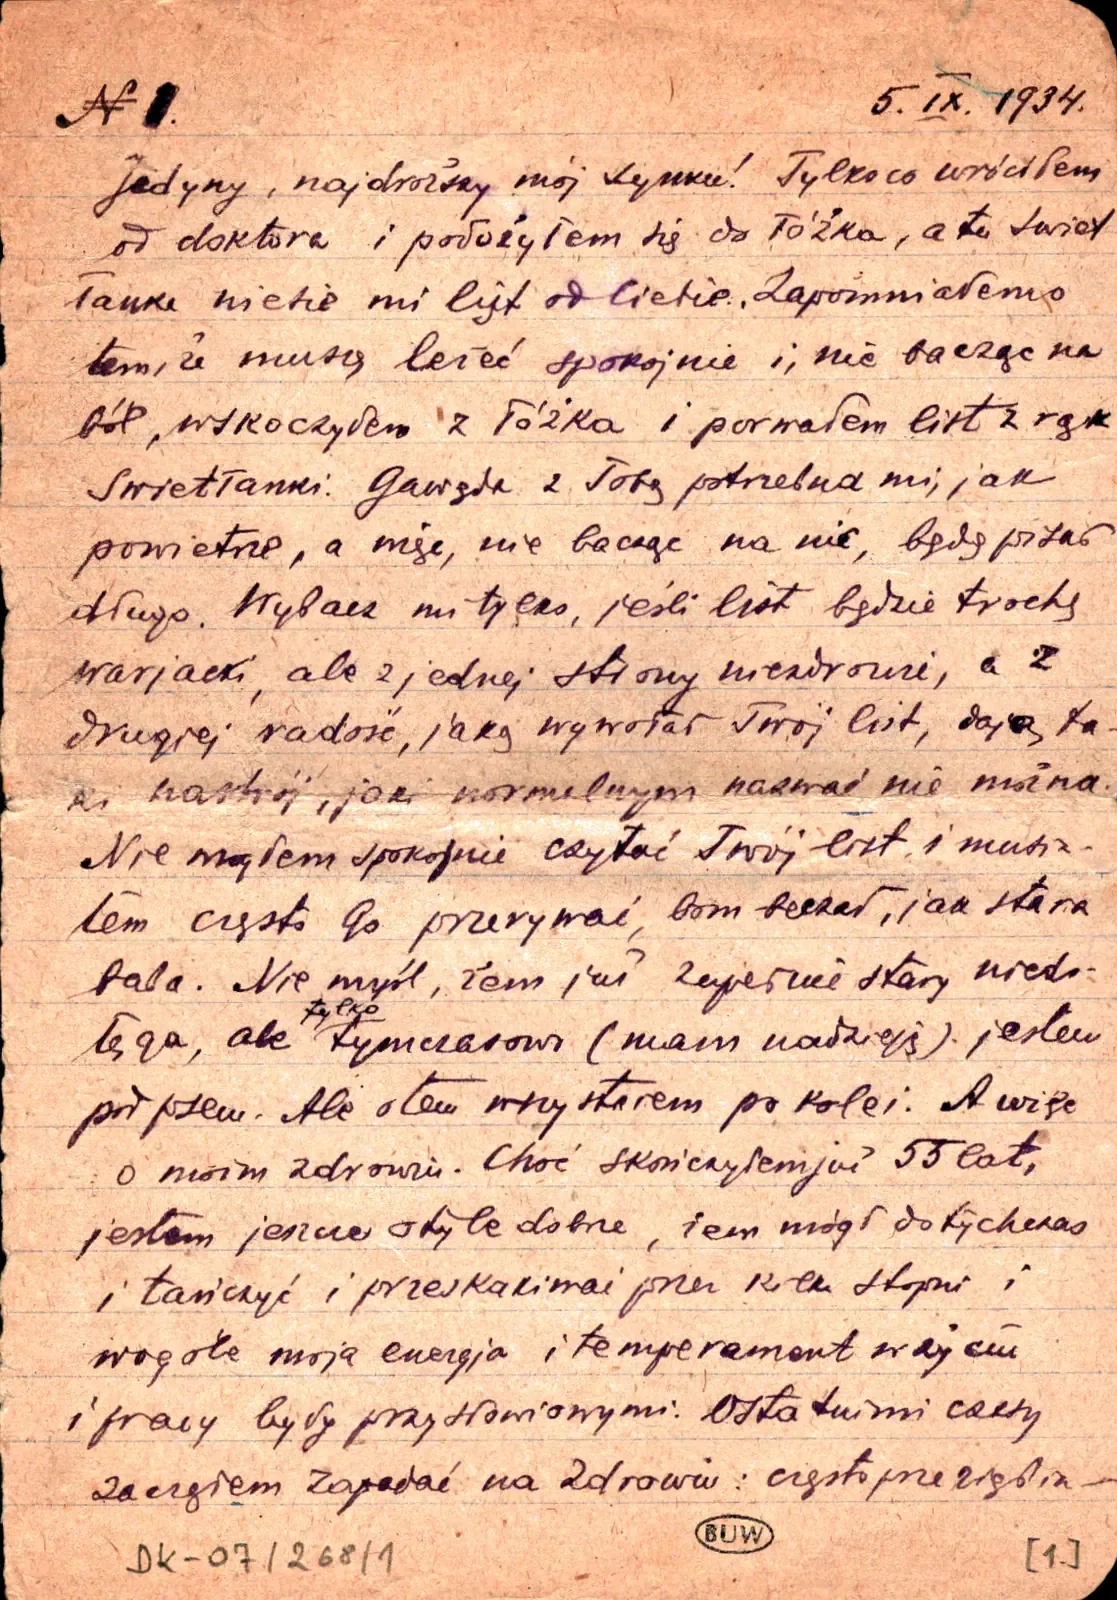 № 1.
5. IX. 1934.
Jedyny, najdroższy mój synku! Tylko co wróciłem
od doktora i położyłem się do łóżka, a tu Swiet
łanka niesie mi list od Ciebie. Zapomniałem o
tem, że muszę leżeć spokojnie i, nie bacząc na
ból, wskoczyłem z łóżka i porwałem list z rąk
Swietłanki. Gawęda z Tobą potrzebna mi, jak
powietrze, a więc, nie bacząc na nic, będę pisał
długo. Wybacz mi tylko, jeśli list będzie trochę
warjacki, ale z jednej strony niezdrowie, a z
drugiej radość, jaką wywołał Twój list, dają ta-
ki nastrój, jaki normalnym nazwać nie można.
Nie mogłem spokojnie czytać Twój list i musia-
łem często Go przerywać, bom beczał, jak stara
baba. Nie myśl, żem już zupełnie stary niedo-
łęga, ale tylko tymczasowo (mam nadzieję) jestem
pod psem. Ale o tem wszystkiem po kolei. A więc
o moim zdrowiu. Choć skończyłem już 55 lat,
jestem jeszcze o tyle dobrze, żem mógł dotychczas
i tańczyć i przeskakiwać przez kilka stopni i
wogóle moja energja i temperament w życiu
i pracy były przysłowiowymi. Ostatnimi czasy
zacząłem zapadać na zdrowiu: często przeziębia-
BUW
DK-07/268/1
[1.]